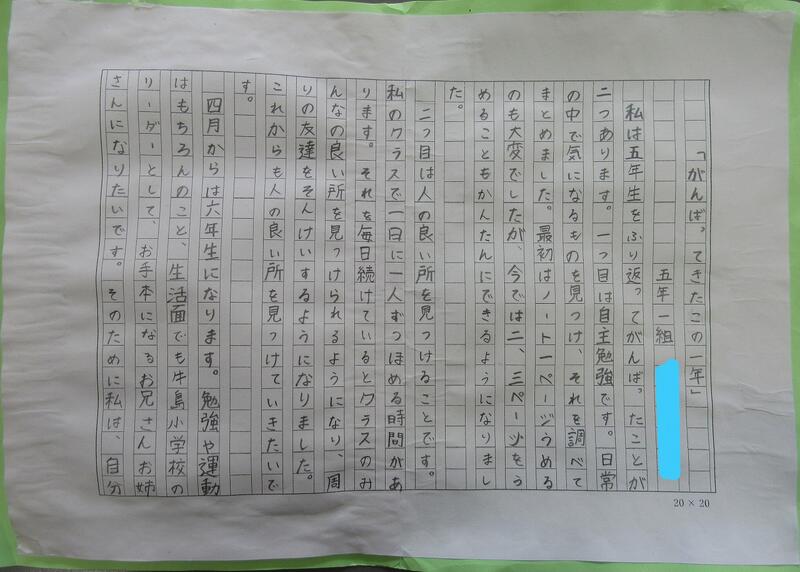 「がんばってきたこの一年」
五年一組
私は五年生をふり返ってがんばったことが
二つあります。一つ目は自主勉強です。日常
の中で気になるものを見つけ、それを調べて
まとめました。最初はノート一ページうめる
のも大変でしたが、今では二、三ページをう
めることもかんたんにできるようになりまし
た。
二つ目は人の良い所を見つけることです。
私のクラスで一日に一人ずつほめる時間があ
ります。それを毎日続けているとクラスのみ
んなの良い所を見つけられるようになり、周
りの友達をそんけいするようになりました。
これからも人の良い所を見つけていきたいで
す。
四月からは六年生になります。勉強や運動
はもちろんのこと、生活面でも牛島小学校の
リーダーとして、お手本になるお兄さんお姉
さんになりたいです。そのために私は、自分
20×20